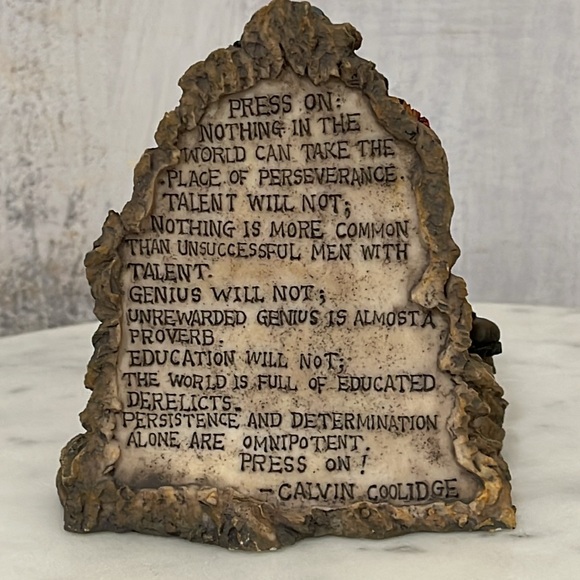 PRESS ON:
NOTHING IN THE
WORLD CAN TAKE THE
PLACE OF PERSEVERANCE.
TALENT WILL NOT;
NOTHING IS MORE COMMON
THAN UNSUCCESSFUL MEN WITH
TALENT.
GENIUS WILL NOT;
UNREWARDED GENIUS IS ALMOST A
PROVERB.
EDUCATION WILL NOT;
THE WORLD IS FULL OF EDUCATED
DERELICTS.
PERSISTENCE AND DETERMINATION
ALONE ARE OMNIPOTENT.
PRESS ON!
- CALVIN COOLIDGE